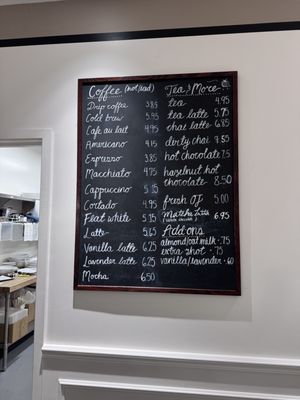 Coffee (hot/iced)
Drip coffee 3.85
Cold brew 5.95
Cafe au lait 4.95
Americano 4.15
Espresso 3.85
Macchiato 4.75
Cappuccino 5.15
Cortado 4.95
Flat white 5.15
Latte 5.65
Vanilla latte 6.25
Lavender latte 6.25
Mocha 6.50
Tea & More
tea 4.95
tea latte 5.75
chai latte 6.85
dirty chai 7.85
hot chocolate 7.5
hazelnut hot
chocolate 8.50
fresh OJ 5.00
Matcha Latte 6.95
Add ons
almond/oat milk .75
extra shot .75
vanilla/lavender .60